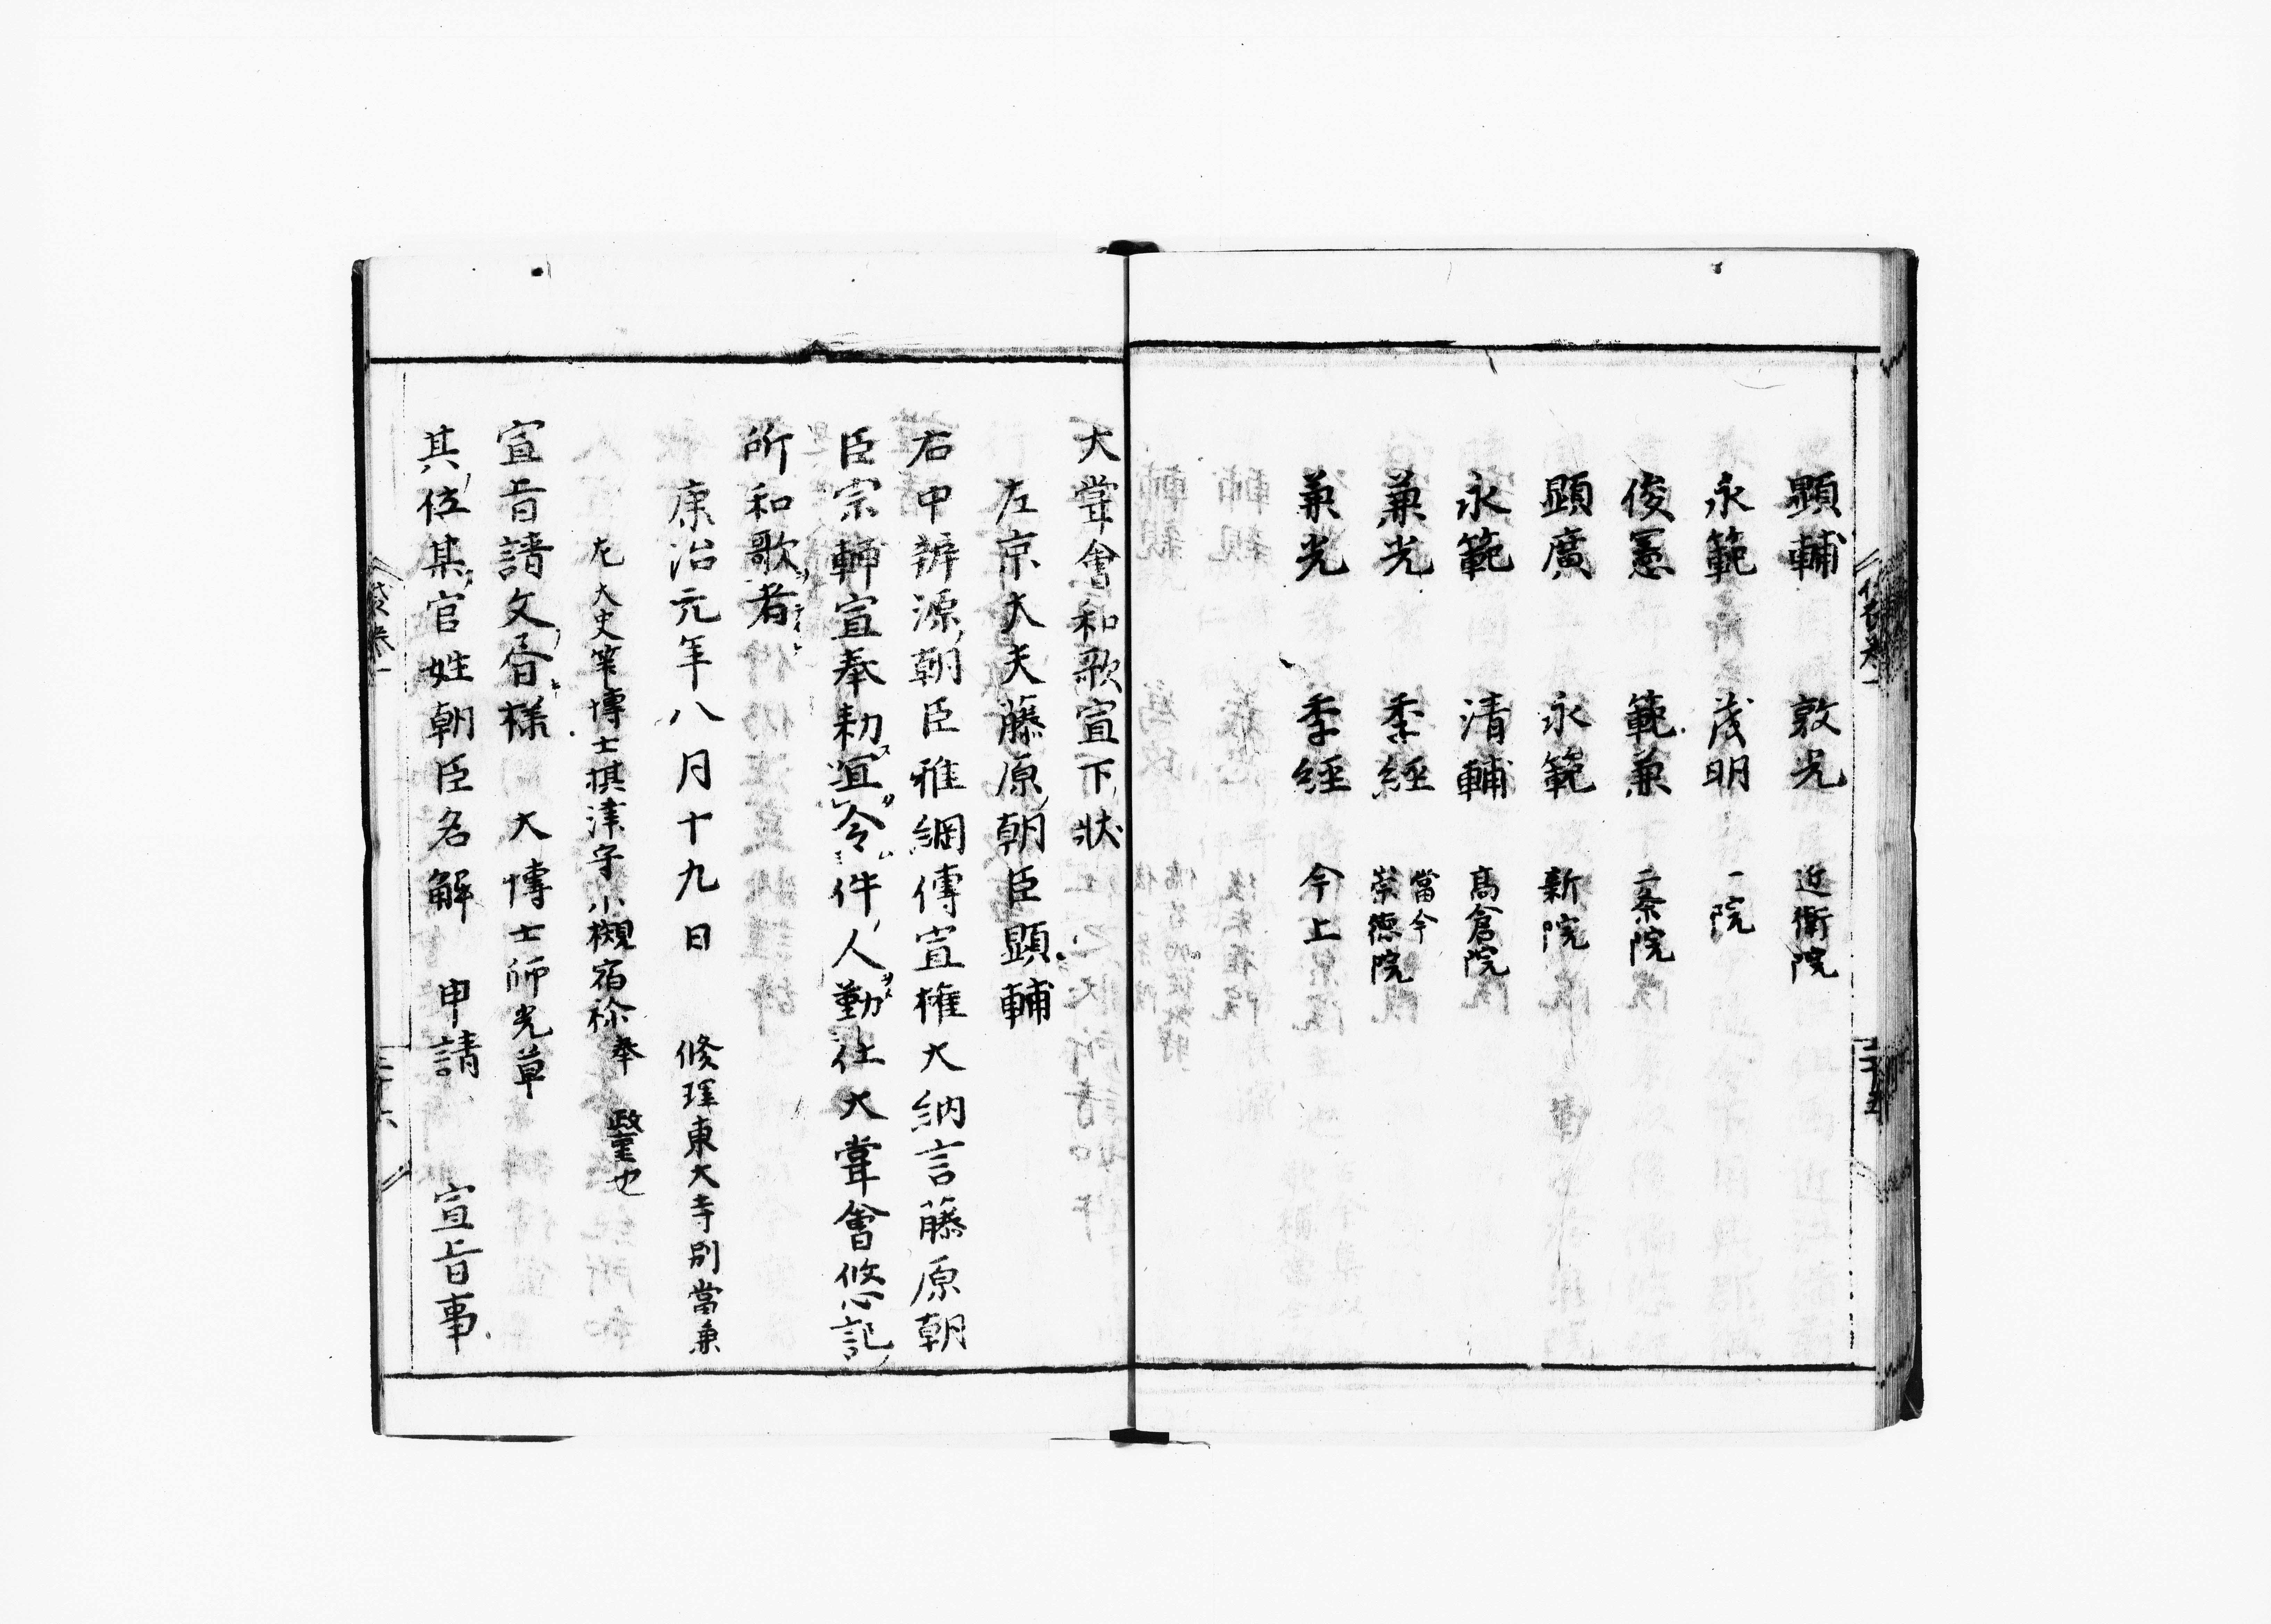 顕輔 敦光 近衛院
永範 茂明 一院
俊憲 範兼 二条院
顕廣 永範 新院
永範 清輔 髙倉院
兼光 季經 當今 崇德院
兼光 季經 今上
大嘗會和歌宣下状
左京大夫藤原朝臣顕輔
右中辨源朝臣雅綱傳宣権大納言藤原朝
臣宗輔宣奉勅宜令件人勤仕大嘗會悠記
所和歌者
康治元年八月十九日 修理東大寺別當兼
左大史筭博士摂津守小槻宿祢奉 政重也
宣旨請文昏様 大博士師光草
其位某官姓朝臣名解 申請 宣旨事